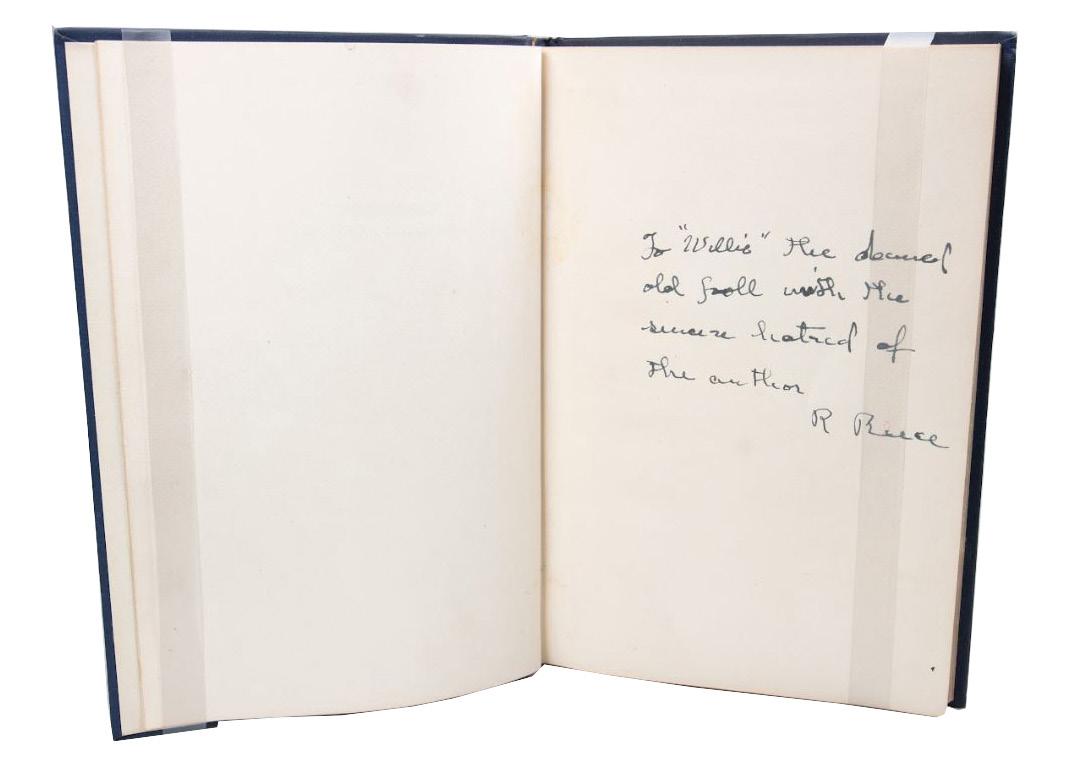 To "Willie" the damned
old with the
sincere hatred of
the author
R